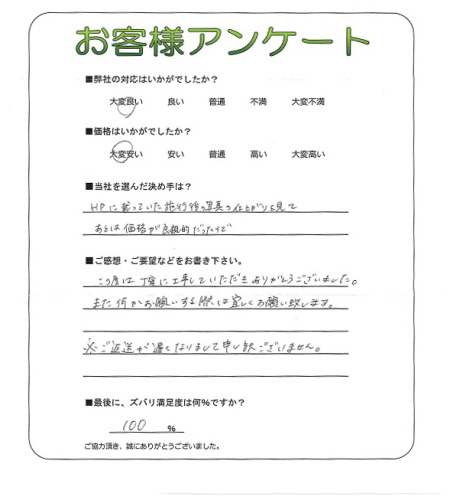 お客様アンケート
■弊社の対応はいかがでしたか？
大変良い 良い 普通 不満 大変不満
■価格はいかがでしたか？
大変安い 安い 普通 高い 大変高い
■当社を選んだ決め手は？
HPに載っていた施行後の写真の仕上がりを見て
あとは価格が良心的だったので
■ご感想・ご要望などをお書き下さい。
この度は丁寧に工事していただきありがとうございました。
また何かお願いする際は宜しくお願い致します。
※ご返送が遅くなりまして申し訳ございません。
■最後に、ズバリ満足度は何％ですか？
100 ％
ご協力頂き、誠にありがとうございました。